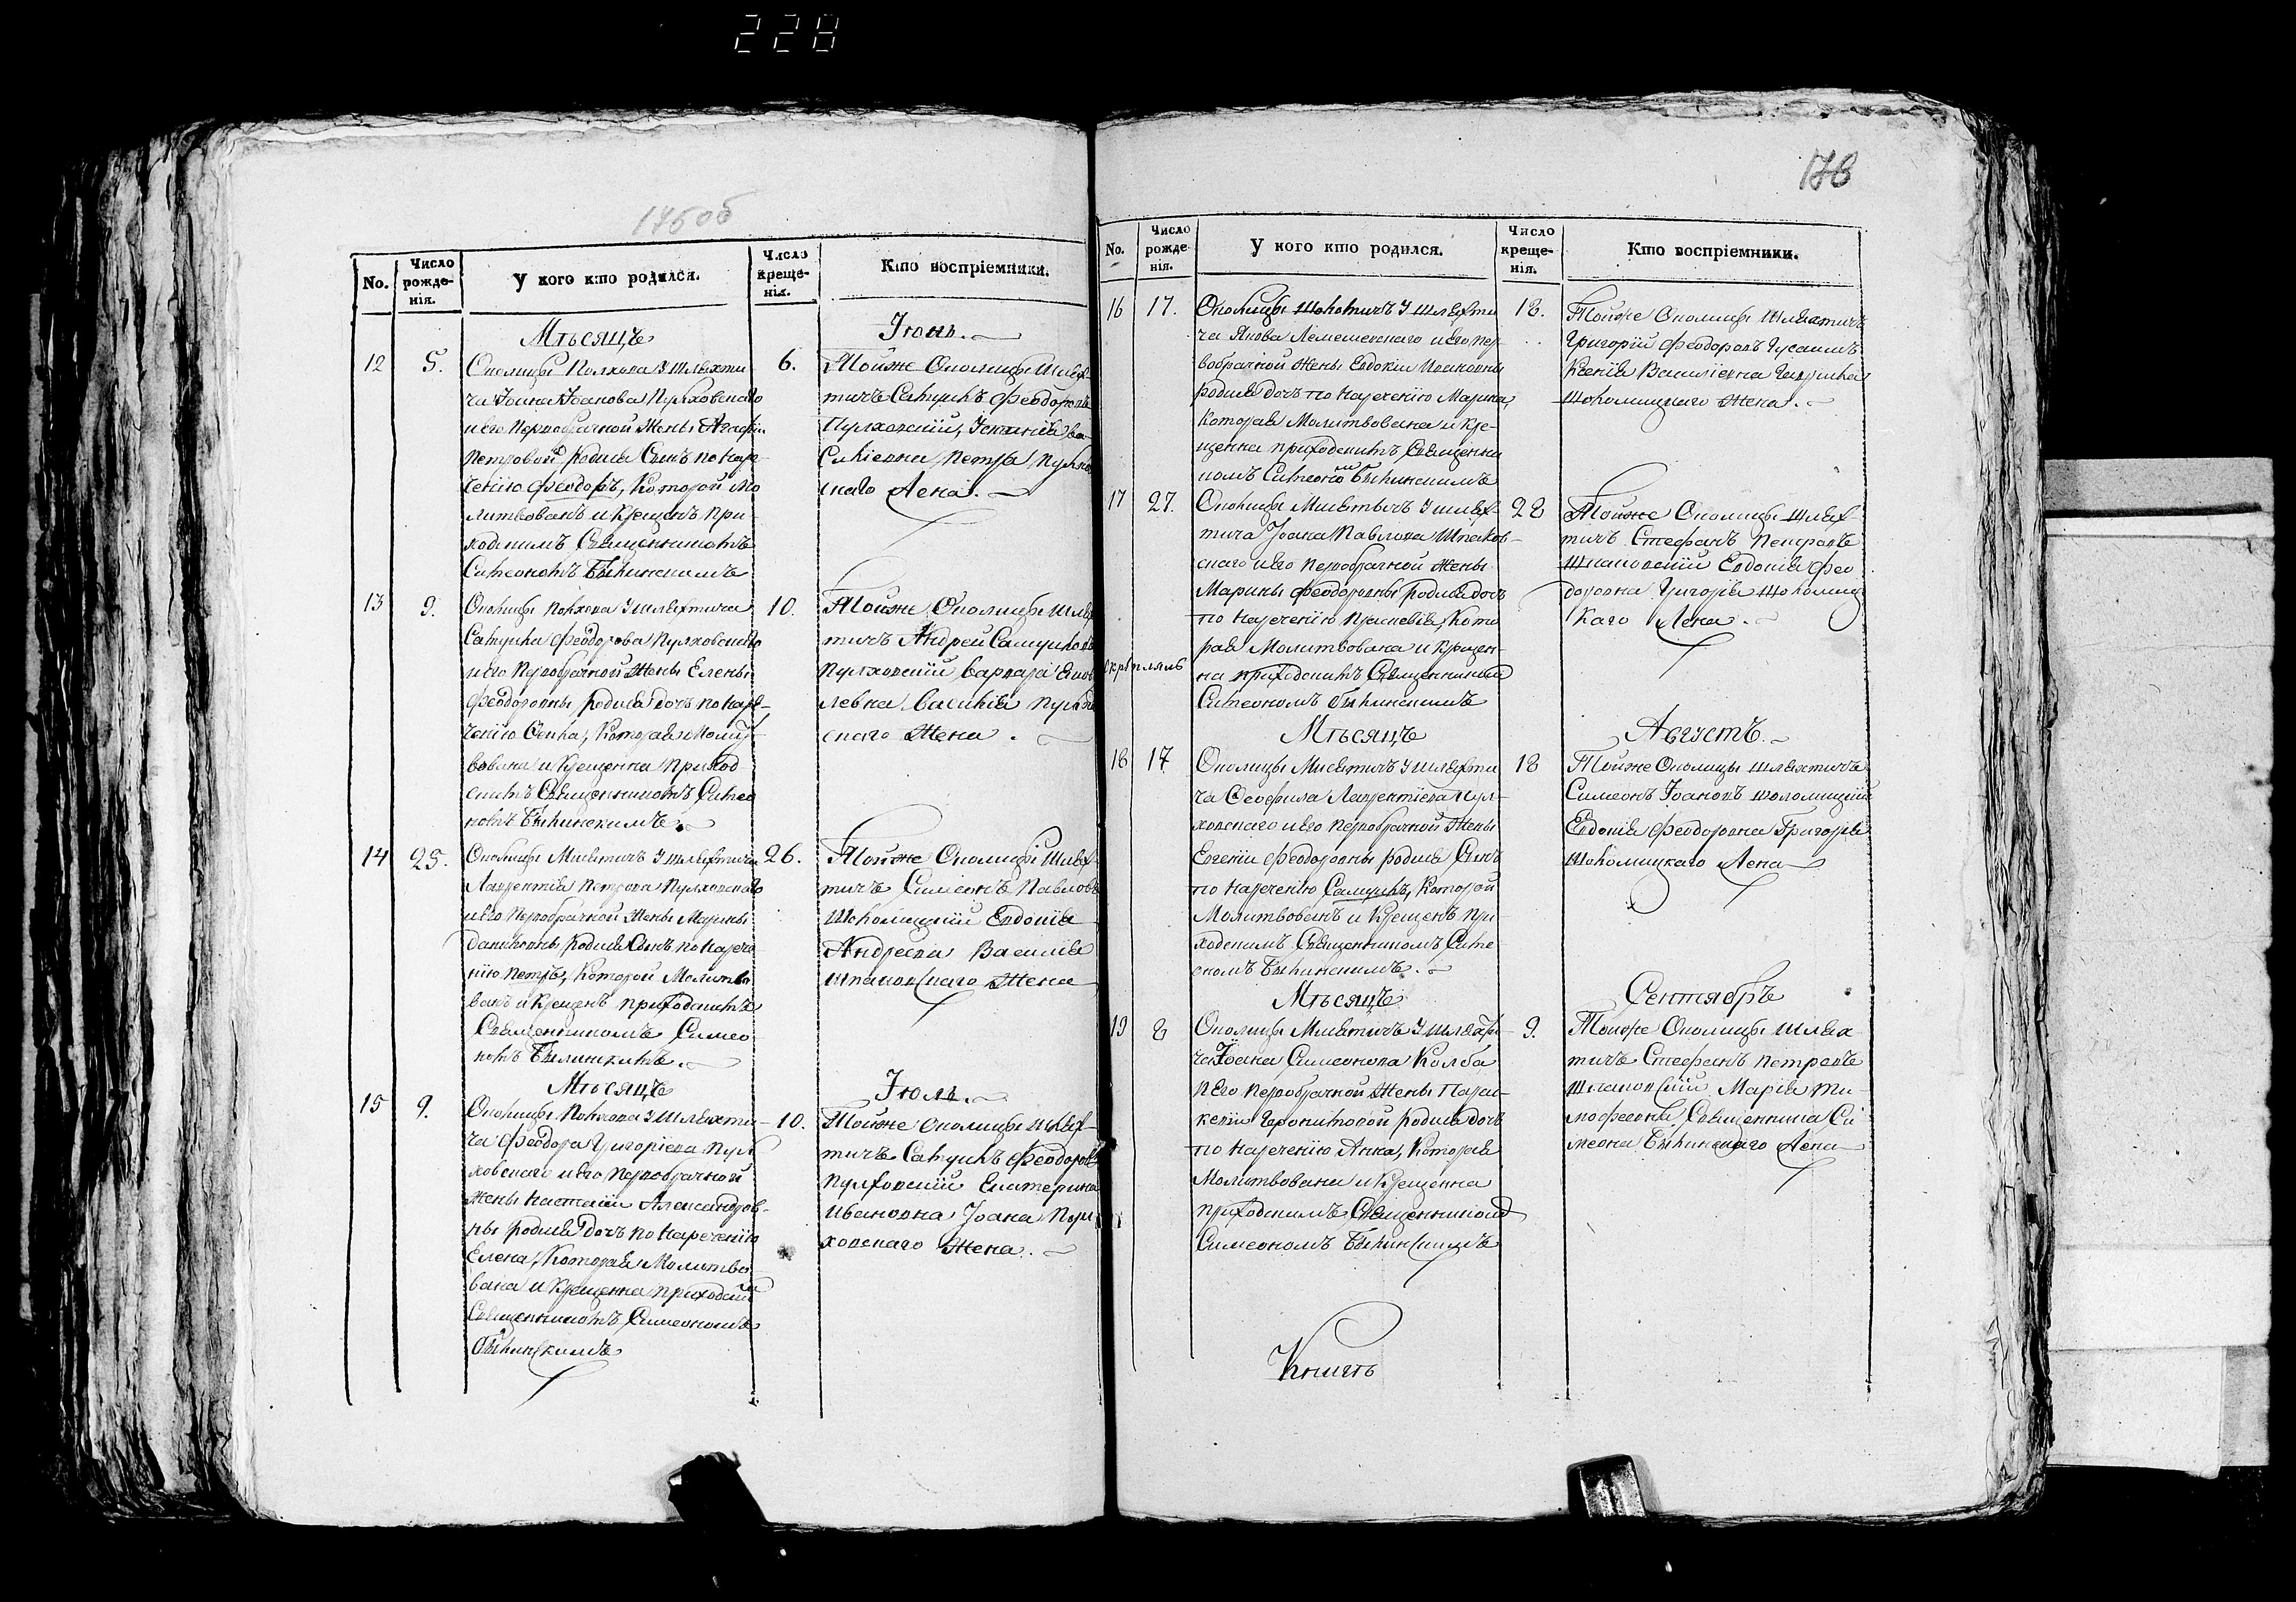 228
175об
No.
Число рожденія.
У кого кто родился.
Число крещенія.
Кто воспріемники.
Мѣсяцъ
Іюнь.
12
5.
Околицы Полхова У шляхти
ча Іоана Іоанова Пулховскаго
и его Первобрачной Жены Агафіи
Петровой родился Сынъ по наре
ченію Феодоръ, Которой Мо
литвованъ и Крещенъ При
ходскимъ Священникомъ
Симеономъ Былинскимъ
6.
Тойже Околицы Шлях
тичъ Самуилъ Феодоровъ
Пулховскій, Ва
силіевна Петра Пулхов
скаго Жена.
13
9.
Околицы Полхова У шляхтича
Самуила Феодорова Пулховскаго
и его Первобрачной Жены Елены
Феодоровны родилась дочь по наре
ченію Фекла, Которая Молит
вована и Крещенна Приход
скимъ Священникомъ Симео
номъ Былинскимъ
10.
Тойже Околицы Шлях
тичъ Андрей Самуиловъ
Пулховскій Варвара
Василія Пулхов
скаго Жена.
14
25.
Околицы Мисятичъ У шляхтича
Лаврентія Петрова Пулховскаго
и его Первобрачной Жены Марины
Даниловны родился Сынъ по нарече
нію Петръ, Которой Молитво
ванъ и Крещенъ приходскимъ
Священникомъ Симео
номъ Былинскимъ.
26.
Тойже Околицы Шлях
тичъ Симеонъ Павловъ
Шоломицкій Евдокія
Андреева Василія
Шпаковскаго Жена
Мѣсяцъ
Іюль.
15
9.
Околицы Полхова У шляхти
ча Феодора Григоріева Пул
ховскаго и его Первобрачной
Жены Настасіи Александров
ны родилась Дочь по нареченію
Елена, Которая Молитво
вана и Крещенна приходским
Священникомъ Симеономъ
Былинскимъ
10.
Тойже Околицы Шлях
тичъ Самуилъ Феодоровъ
Пулховскій Екатерина
Ивановна Іоана Пул
ховскаго Жена.
178
No.
Число рожденія.
У кого кто родился.
Число крещенія.
Кто воспріемники.
16
17.
Околицы Шоломичъ У шляхти
ча Якова Лемешевскаго и его пер
вобрачной Жены Евдокіи Ивановны
родилась дочь по нареченію Марина,
которая Молитвована и кре
щенна приходскимъ Священни
комъ Симеоном Былинскимъ
18.
Тойже Околицы Шляхтичъ
Григорій Феодоровъ Гусаимъ
Ксенія Василіевна Гаврила
Шоломицкаго Жена.
17
27.
Околицы Мисятичъ У шлях
тича Іоана Павлова Шпаков
скаго и его первобрачной Жены
Марины Феодоровны родилась дочь
по нареченію Прасковія, Кото
рая Молитвована и Крещен
на приходскимъ Священником
Симеономъ Былинскимъ
28
Тойже Околицы Шлях
тичъ Стефанъ Петровъ
Шпаковскій Евдокія Фео
доровна Григорія Шоломиц
каго Жена.
скрѣплялъ
Мѣсяцъ
Августъ.
18
17
Околицы Мисятичъ У шляхти
ча Феофила Лаврентіева Пул
ховскаго и его первобрачной Жены
Евгеніи Феодоровны родился Сынъ
по нареченію Самуилъ, Которой
Молитвованъ и Крещенъ при
ходскимъ Священникомъ Симе
ономъ Былинскимъ.
18
Тойже Околицы Шляхтичъ
Симеонъ Іоановъ Шоломицкій
Евдокія Феодоровна Григорія
Шоломицкаго Жена
Мѣсяцъ
Сентябрь
19
8
Околицы Мисятичъ У шляхти
ча Іоана Симеонова Колба
и Его первобрачной Жены Парас
кевіи родилась дочь
по нареченію Анна, Которая
Молитвована и Крещенна
приходскимъ Священником
Симеономъ Былинскимъ
9.
Тойже Околицы Шлях
тичъ Стефанъ Петровъ
Шпаковскій Марія Ти
мофеевна Священника Си
меона Былинскаго Жена
Книгѣ